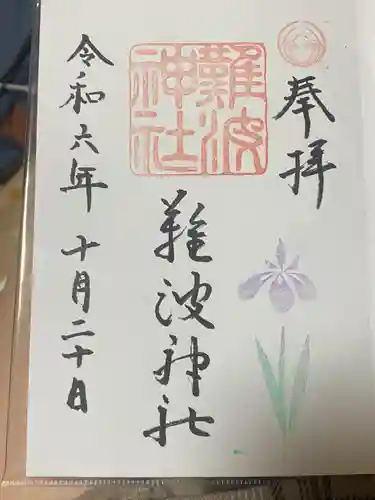 奉拝
難波神社
難波神社
令和六年十月二十日